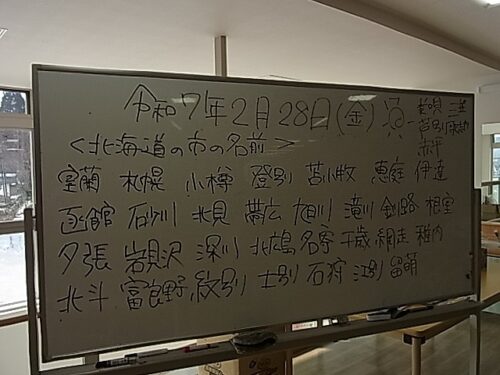 令和7年2月28日(金)
美唄 三笠
芦別 
赤平
<北海道の市の名前>
室蘭 札幌 小樽 登別 苫小牧 恵庭 伊達
函館 砂川 北見 帯広 旭川 滝川 釧路 根室
夕張 岩見沢 深川 北広島 名寄 千歳 網走 稚内
北斗 富良野 紋別 士別 石狩 江別 留萌